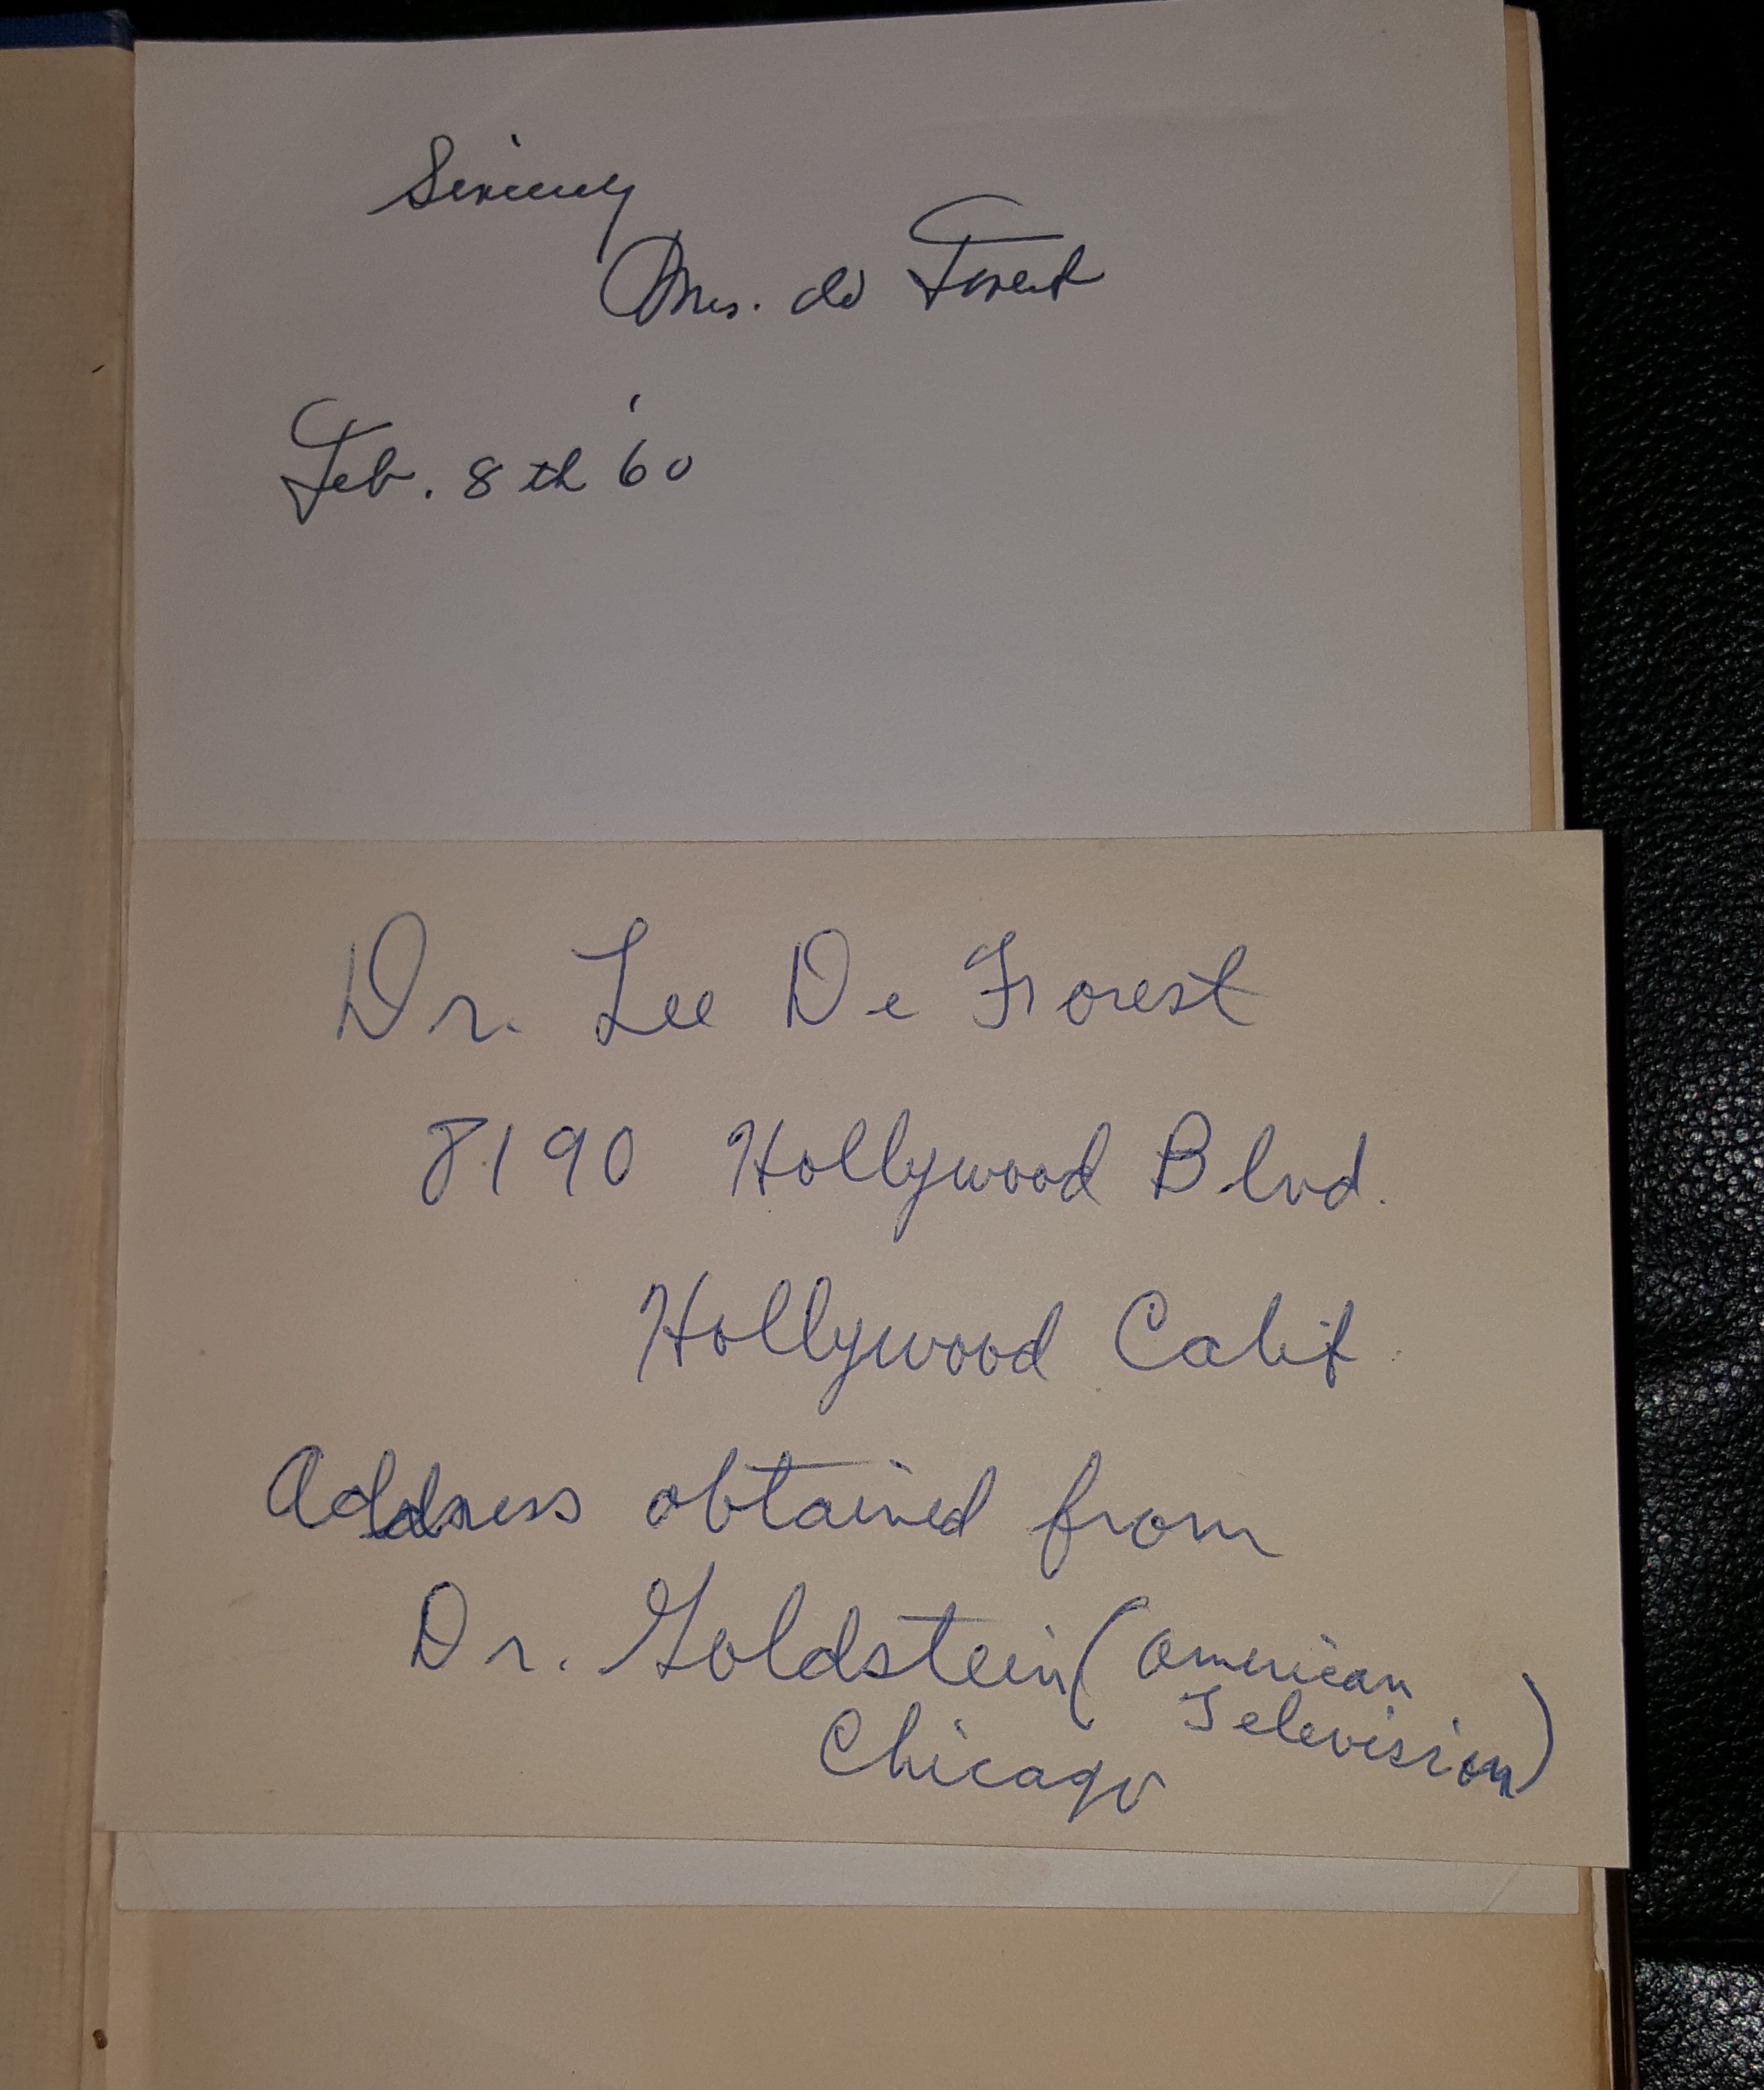 Sincerely
Mrs. de Forest
Feb. 8th '60
Dr. Lee De Forest
8190 Hollywood Blvd.
Hollywood Calif.
Address obtained from
Dr. Goldstein (American
Television)
Chicago